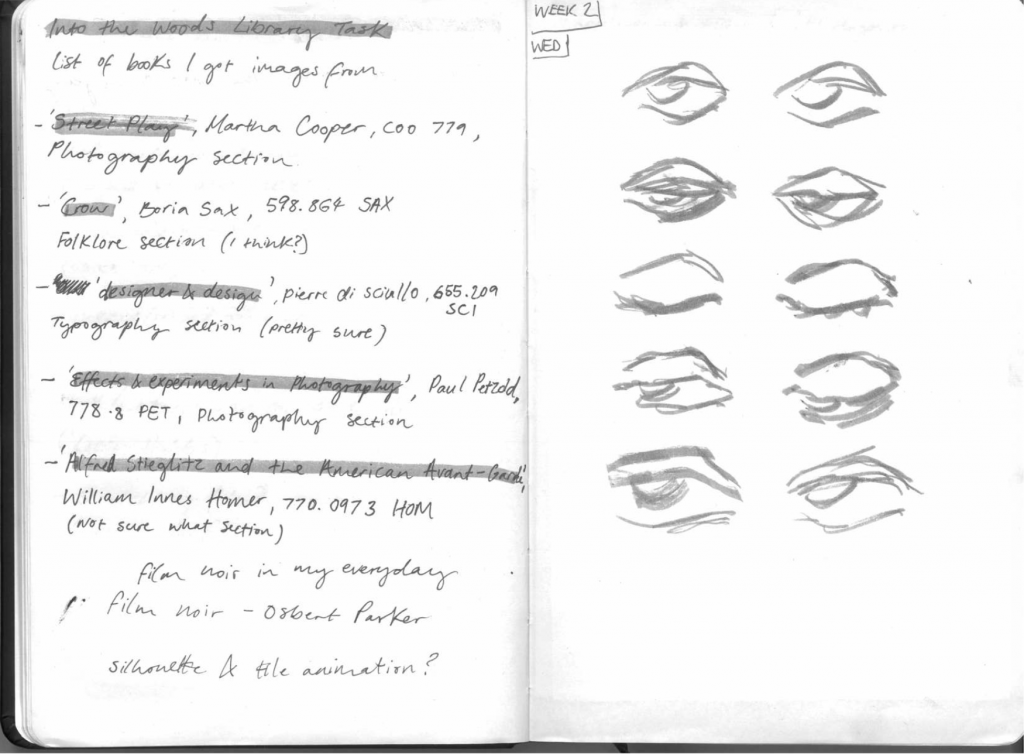 Into the Woods Library Task
List of books I got images from
- 'Street Play', Martha Cooper, COO 779,
Photography section
- 'Crow', Boria Sax, 598.864 SAX
Folklore section (I think?)
- 'designer & design', pierre di sciullo, 655.209
SCI
Typography section (pretty sure)
- 'Effects & experiments in Photography', Paul Petzold,
778.8 PET, Photography section
- 'Alfred Stieglitz and the American Avant-Garde',
William Innes Homer, 770.0973 HOM
(not sure what section)
film noir in my everyday
film noir - Osbert Parker
silhouette & tile animation?
WEEK 2
WED